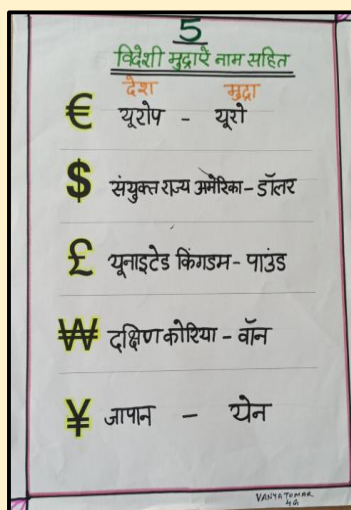 5
विदेशी मुद्राऐं नाम सहित
देश मुद्रा
€ यूरोप - यूरो
$ संयुक्त राज्य अमेरिका - डॉलर
£ यूनाइटेड किंगडम - पाउंड
₩ दक्षिण कोरिया - वॉन
¥ जापान - येन
VANYA TOMAR
4G